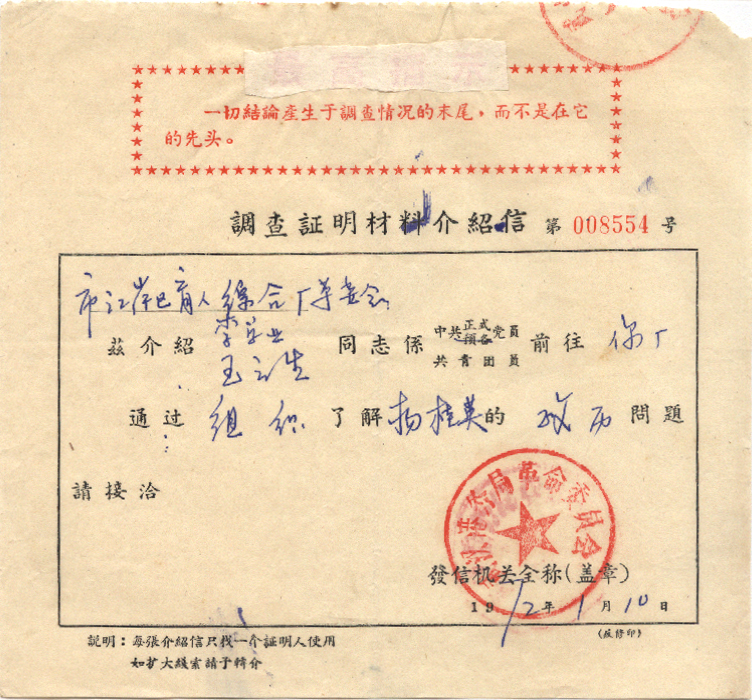 一切結論產生于調查情况的末尾，而不是在它
的先头。
調查証明材料介紹信 第 008554 号
市江岸区育人綜合厂革委会
茲介紹 李 业 同志係 中共正式預备党員 共青团員 前往 你厂
王 生
通过 組织 了解 杨桂英的 政历 問題
請接洽
局革命委員会
發信机关全称(盖章)
19 2年1月10日
説明：每張介紹信只找一个証明人使用
如扩大綫索請予轉介